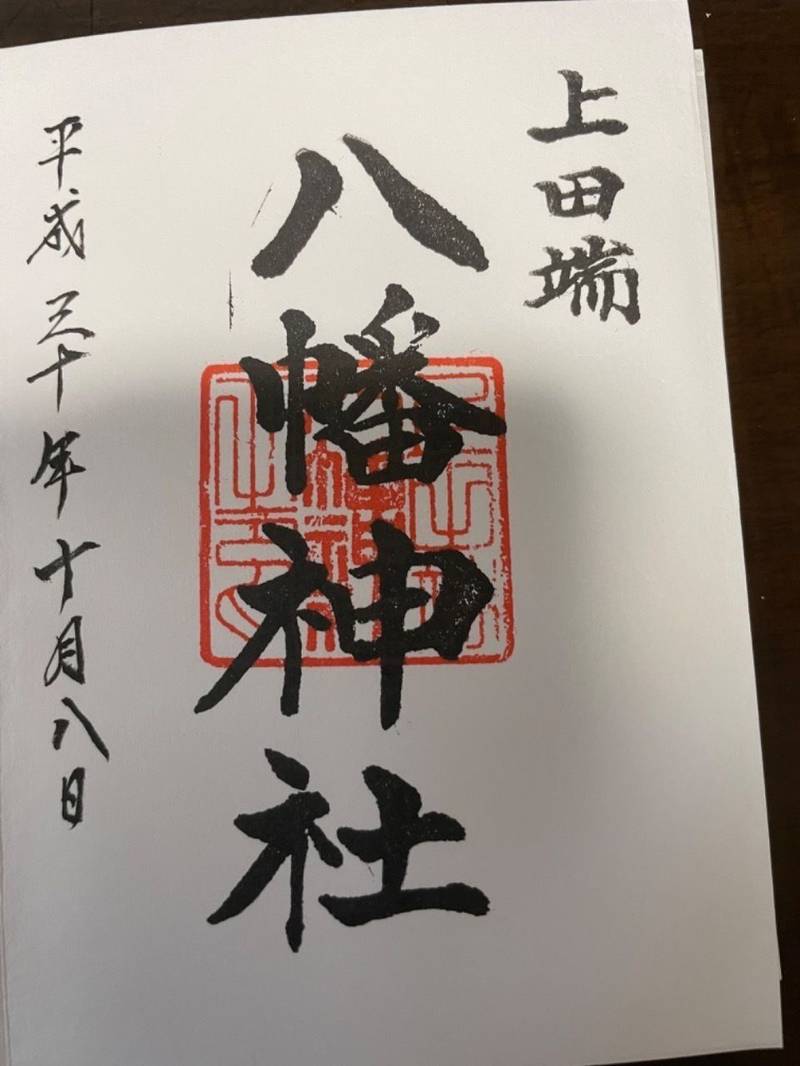 上田端
八幡神社
平成三十年十月八日